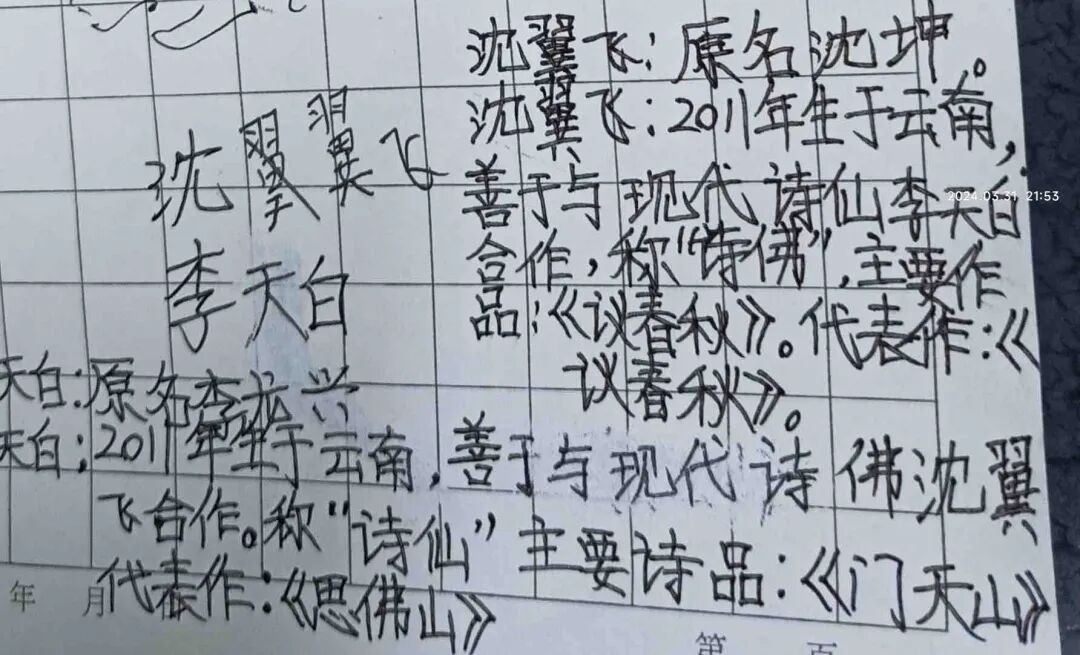 沈翼飞：原名沈坤。
沈翼飞：2011年生于云南，
善于与现代诗仙李天白
合作，称“诗佛”，主要作
品：《议春秋》。代表作：《
议春秋》。
沈翼翼飞
李天白
天白：原名李龙兴
天白：2011年生于云南，善于与现代诗佛沈翼
飞合作。称“诗仙”主要诗品：《门天山》
代表作：《思佛山》
年 月
第 页
2024.03.31 21:53